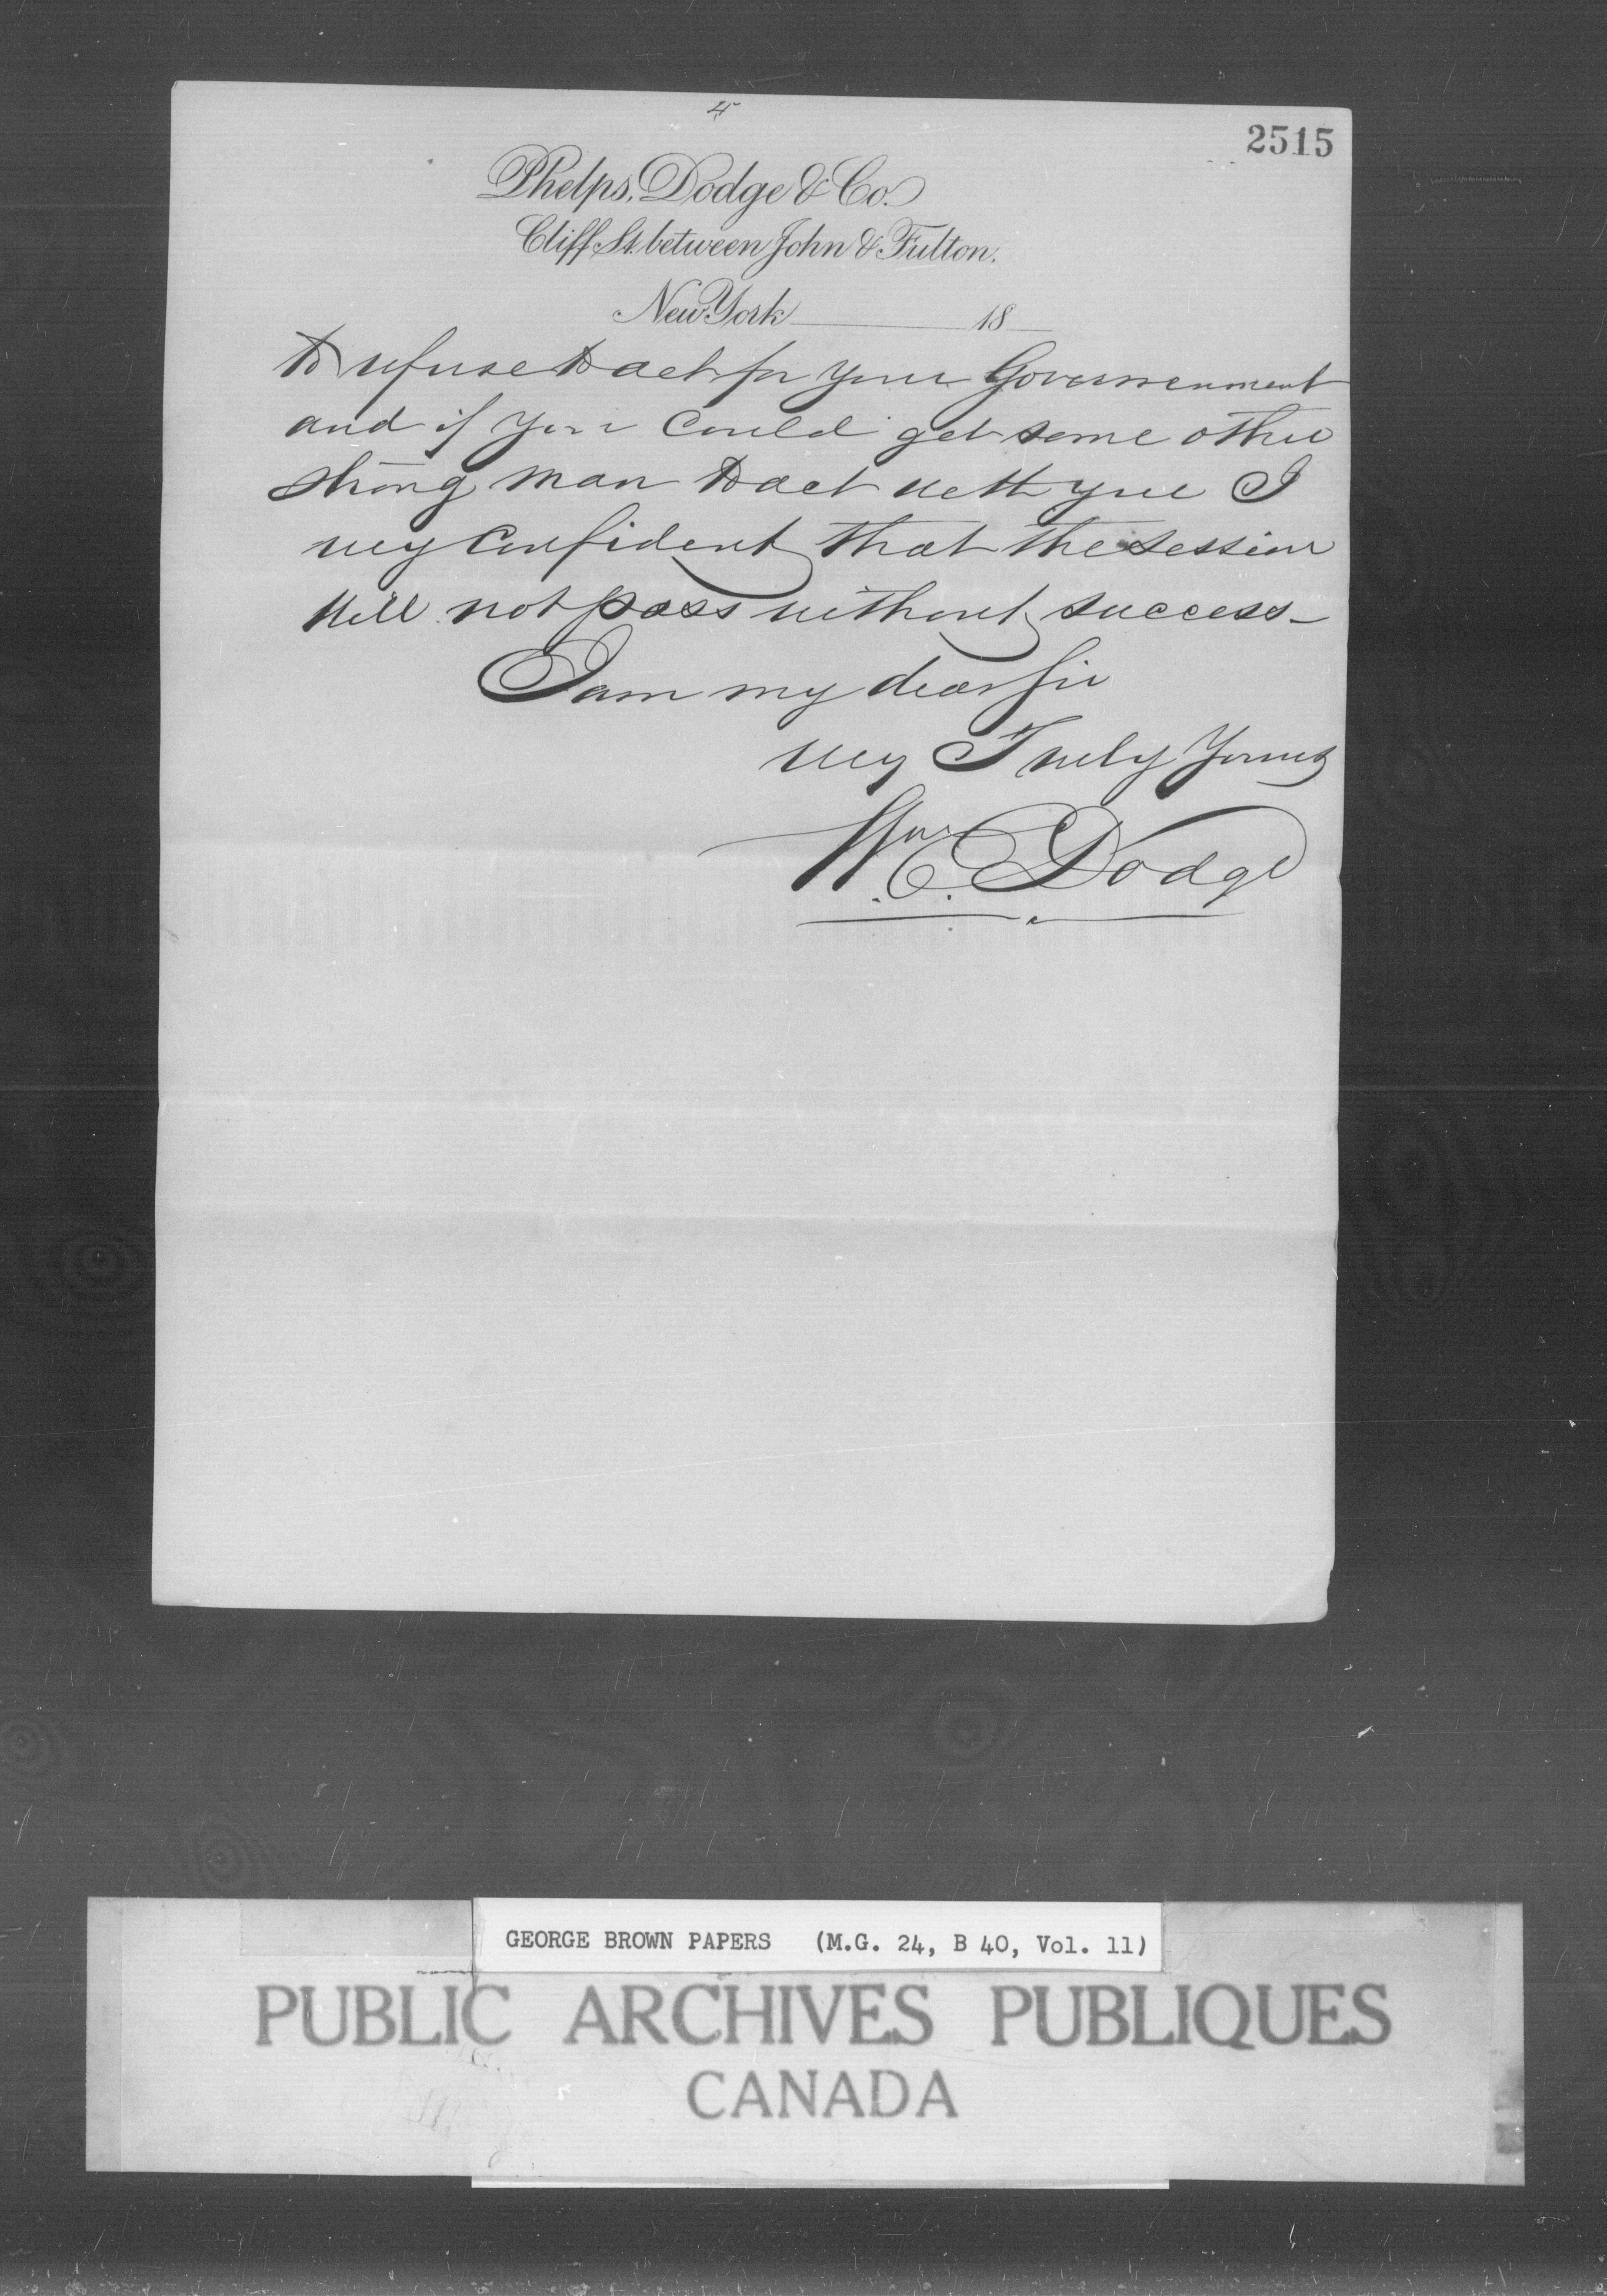 4
2515
Phelps, Dodge & Co.
Cliff St. between John & Fulton.
New York 18
to refuse to act for your Governenment
and if you could get some other
strong man to act with you I
very confident that the session
will not pass without success_
I am my dear Sir
very Truly Yours
Wm. E. Dodge
GEORGE BROWN PAPERS (M.G. 24, B 40, Vol. 11)
PUBLIC ARCHIVES PUBLIQUES
CANADA